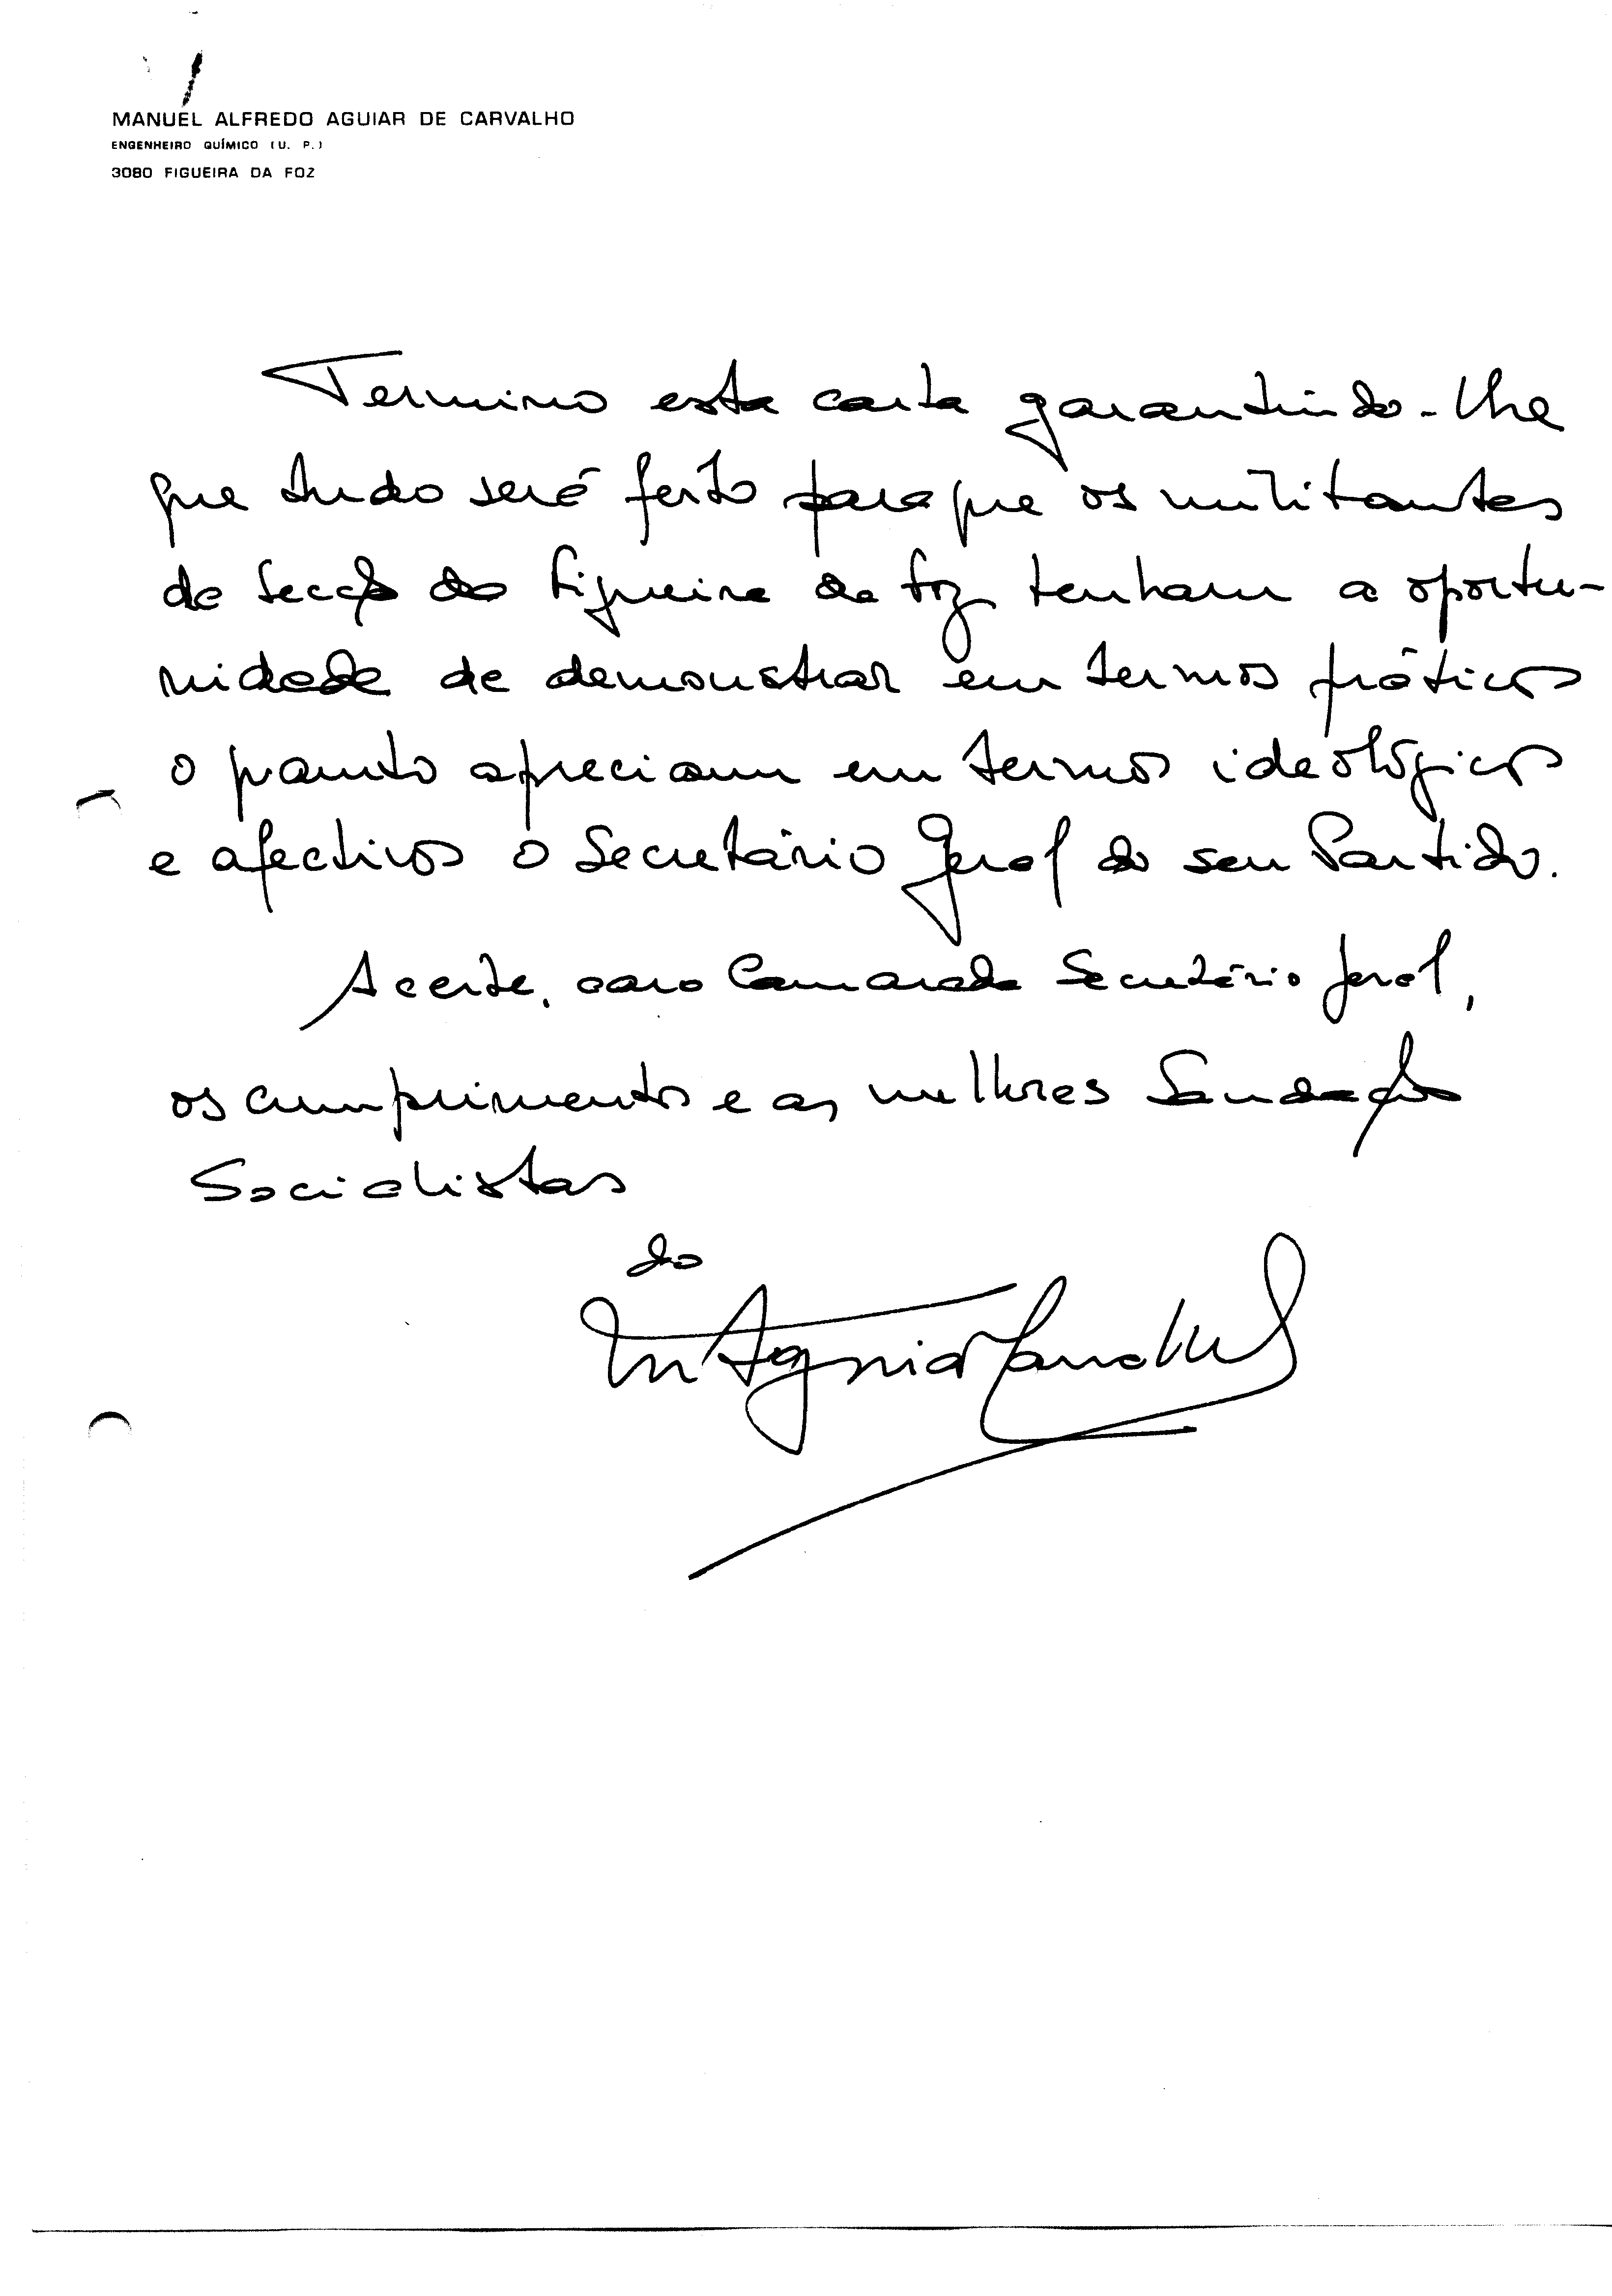 MANUEL ALFREDO AGUIAR DE CARVALHO
ENGENHEIRO QUÍMICO (U. P.)
3080 FIGUEIRA DA FOZ
Termino esta carta garantindo-lhe
que tudo será feito para que os militantes
da Secção da Figueira da Foz tenham a oportu-
nidade de demonstrar em termos práticos
o quanto apreciam em termos ideológicos
e afectivos o Secretário Geral do seu Partido.
Aceite, caro Camarada Secretário Geral,
os cumprimentos e as melhores Saudações
Socialistas
do
M Aguiar Carvalho